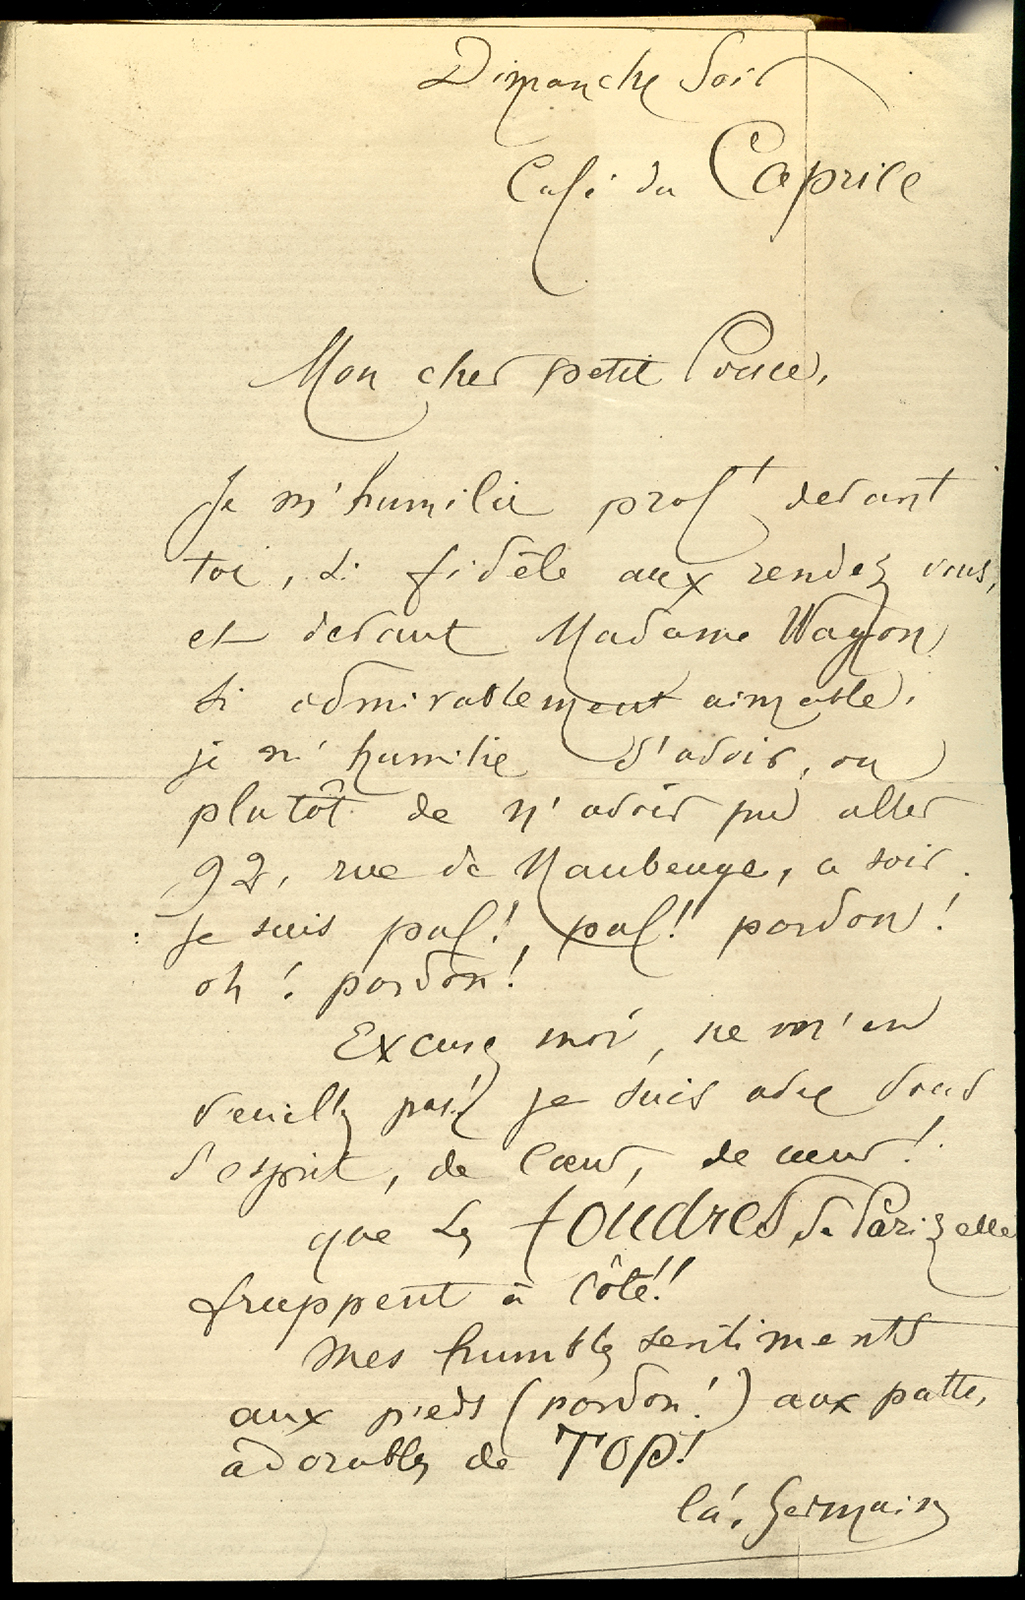 Dimanche Soir
Café du Caprice
Mon cher petit Pouce,
Je m'humilie prof^t devant
toi, si fidèle aux rendez vous,
et devant Madame Wagon
si admirablement aimable.
je m'humilie d'avoir, ou
plutôt de n'avoir pu aller
92, rue de Maubeuge, ce soir.
Je suis paf!, paf! pardon!
oh! pardon!
Excusez moi, ne m'en
veuillez pas! je suis avec vous
d'esprit, de cœur, de cœur!
que les foudres de Parizelle
frappent à côté!!
Mes humbles sentiments
aux pieds (pardon!) aux pattes
adorables de TOP!
Germain